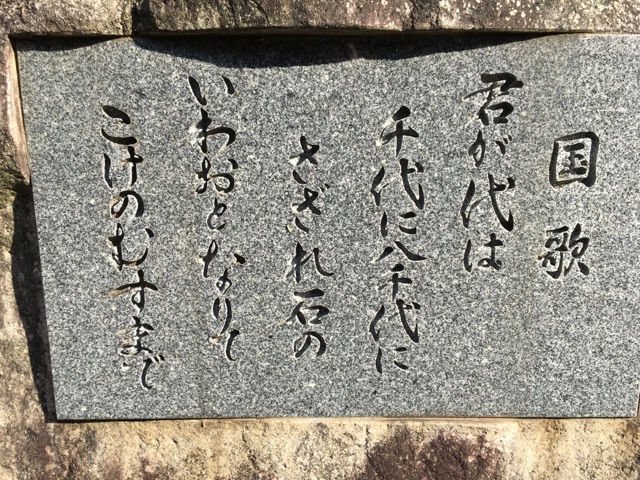 国歌
君が代は
千代に八千代に
さざれ石の
いわおとなりて
こけのむすまで